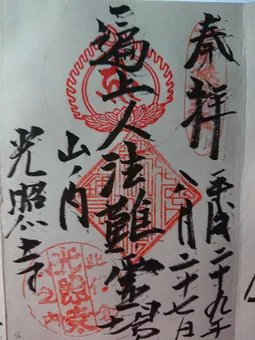 奉拝
平成二十九年
八月二十七日
一遍上人法難霊場
山ノ内
光照寺